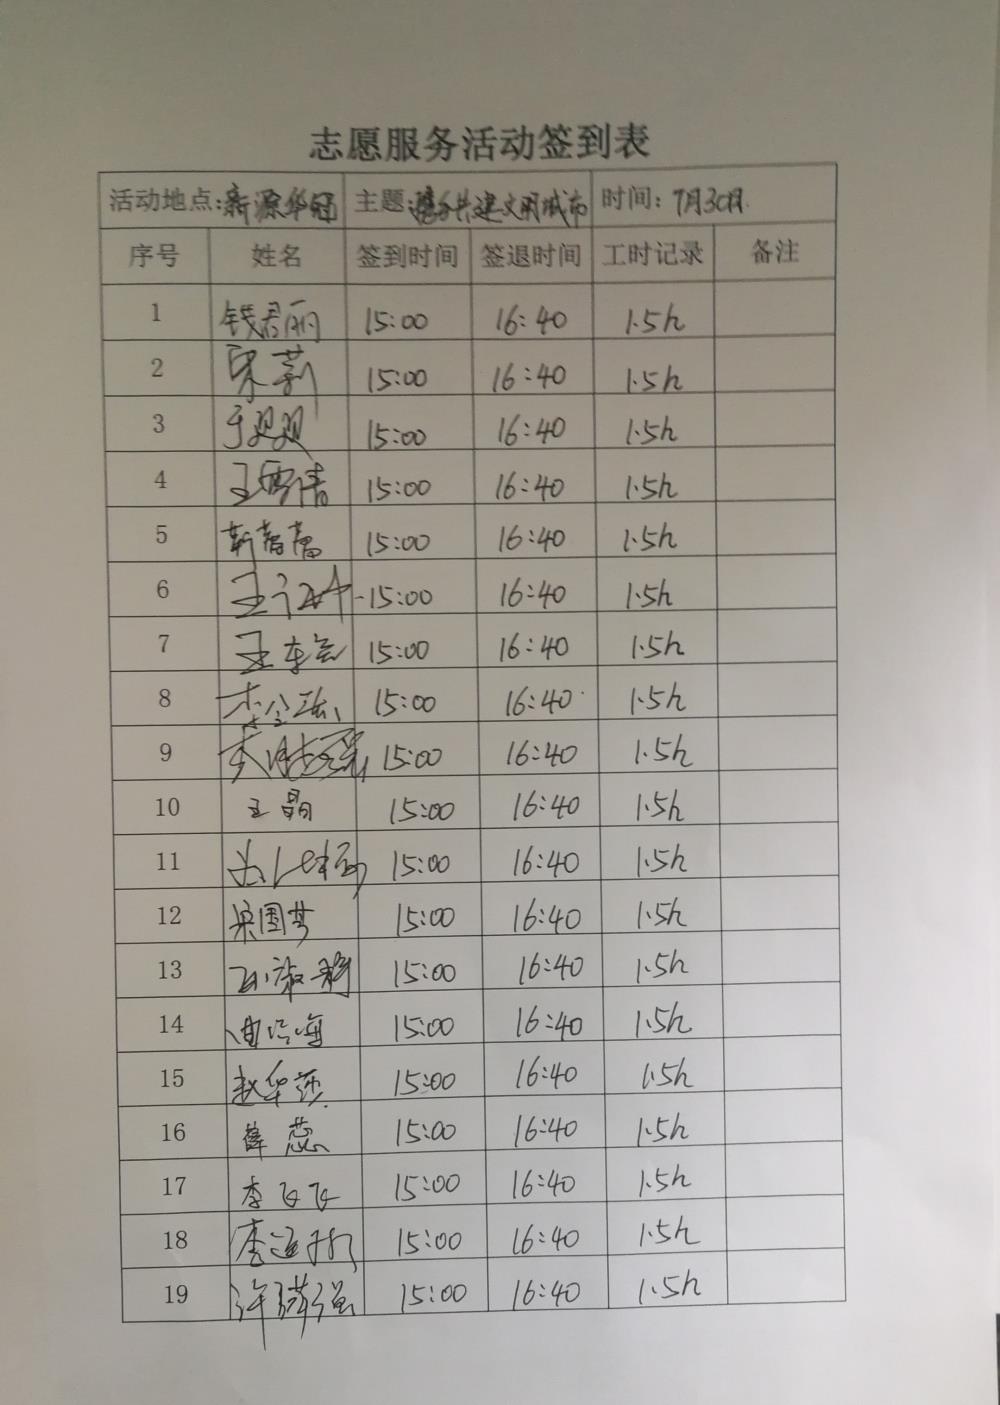 志愿服务活动签到表
活动地点:新源华冠 主题:携手共建文明城市 时间:7月30日
序号 姓名 签到时间 签退时间 工时记录 备注
1 钱君丽 15:00 16:40 1.5h
2 宋莉 15:00 16:40 1.5h
3 于观观 15:00 16:40 1.5h
4 王雪倩 15:00 16:40 1.5h
5 靳蕾蕾 15:00 16:40 1.5h
6 王 15:00 16:40 1.5h
7 王 15:00 16:40 1.5h
8 15:00 16:40 1.5h
9 15:00 16:40 1.5h
10 王晶 15:00 16:40 1.5h
11 15:00 16:40 1.5h
12 梁国梦 15:00 16:40 1.5h
13 孙淑 15:00 16:40 1.5h
14 曲 15:00 16:40 1.5h
15 赵华莎 15:00 16:40 1.5h
16 薛蕊 15:00 16:40 1.5h
17 李飞飞 15:00 16:40 1.5h
18 李 15:00 16:40 1.5h
19 许 强 15:00 16:40 1.5h